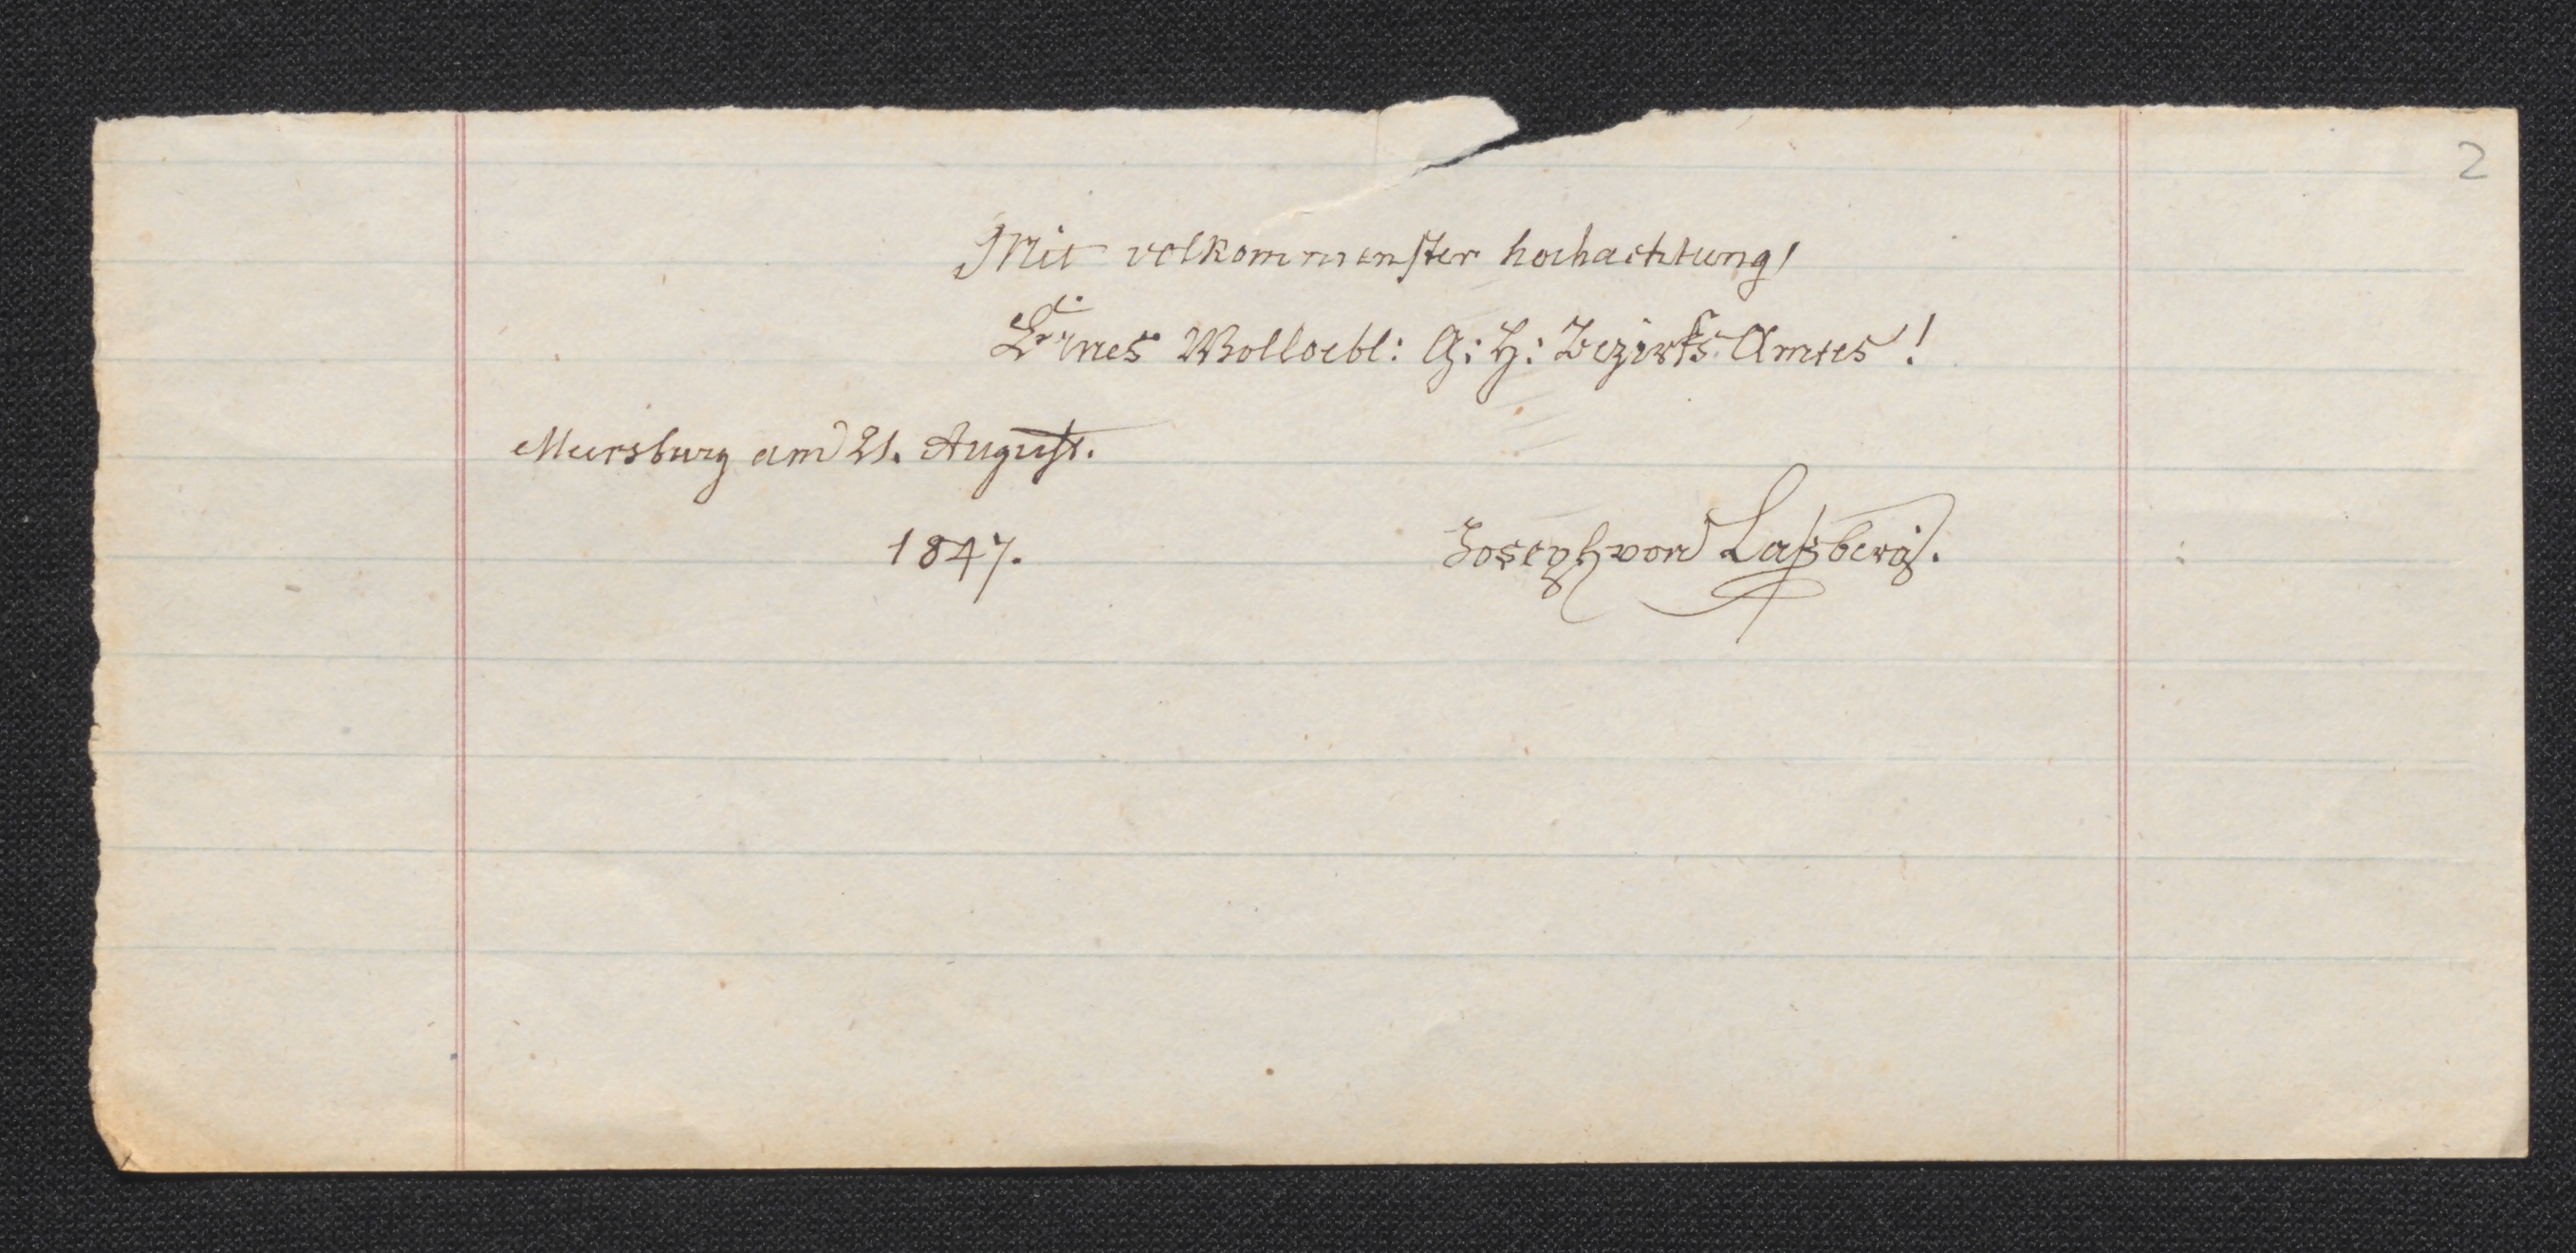 2
Mit volkommenster hochachtung!
Eines Wolloebl: G: H: Bezirks Amtes!
Meersburg am 21. August.
1847.
Joseph von Laßberg.